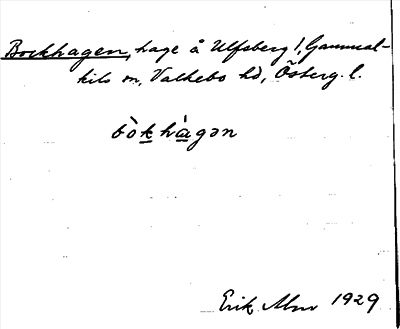 Bockhagen, hage å Ulfsberg 1, Gammal-
kils sn, Valkebo hd, Österg. l.
bòkhàgən
Erik Abm 1929